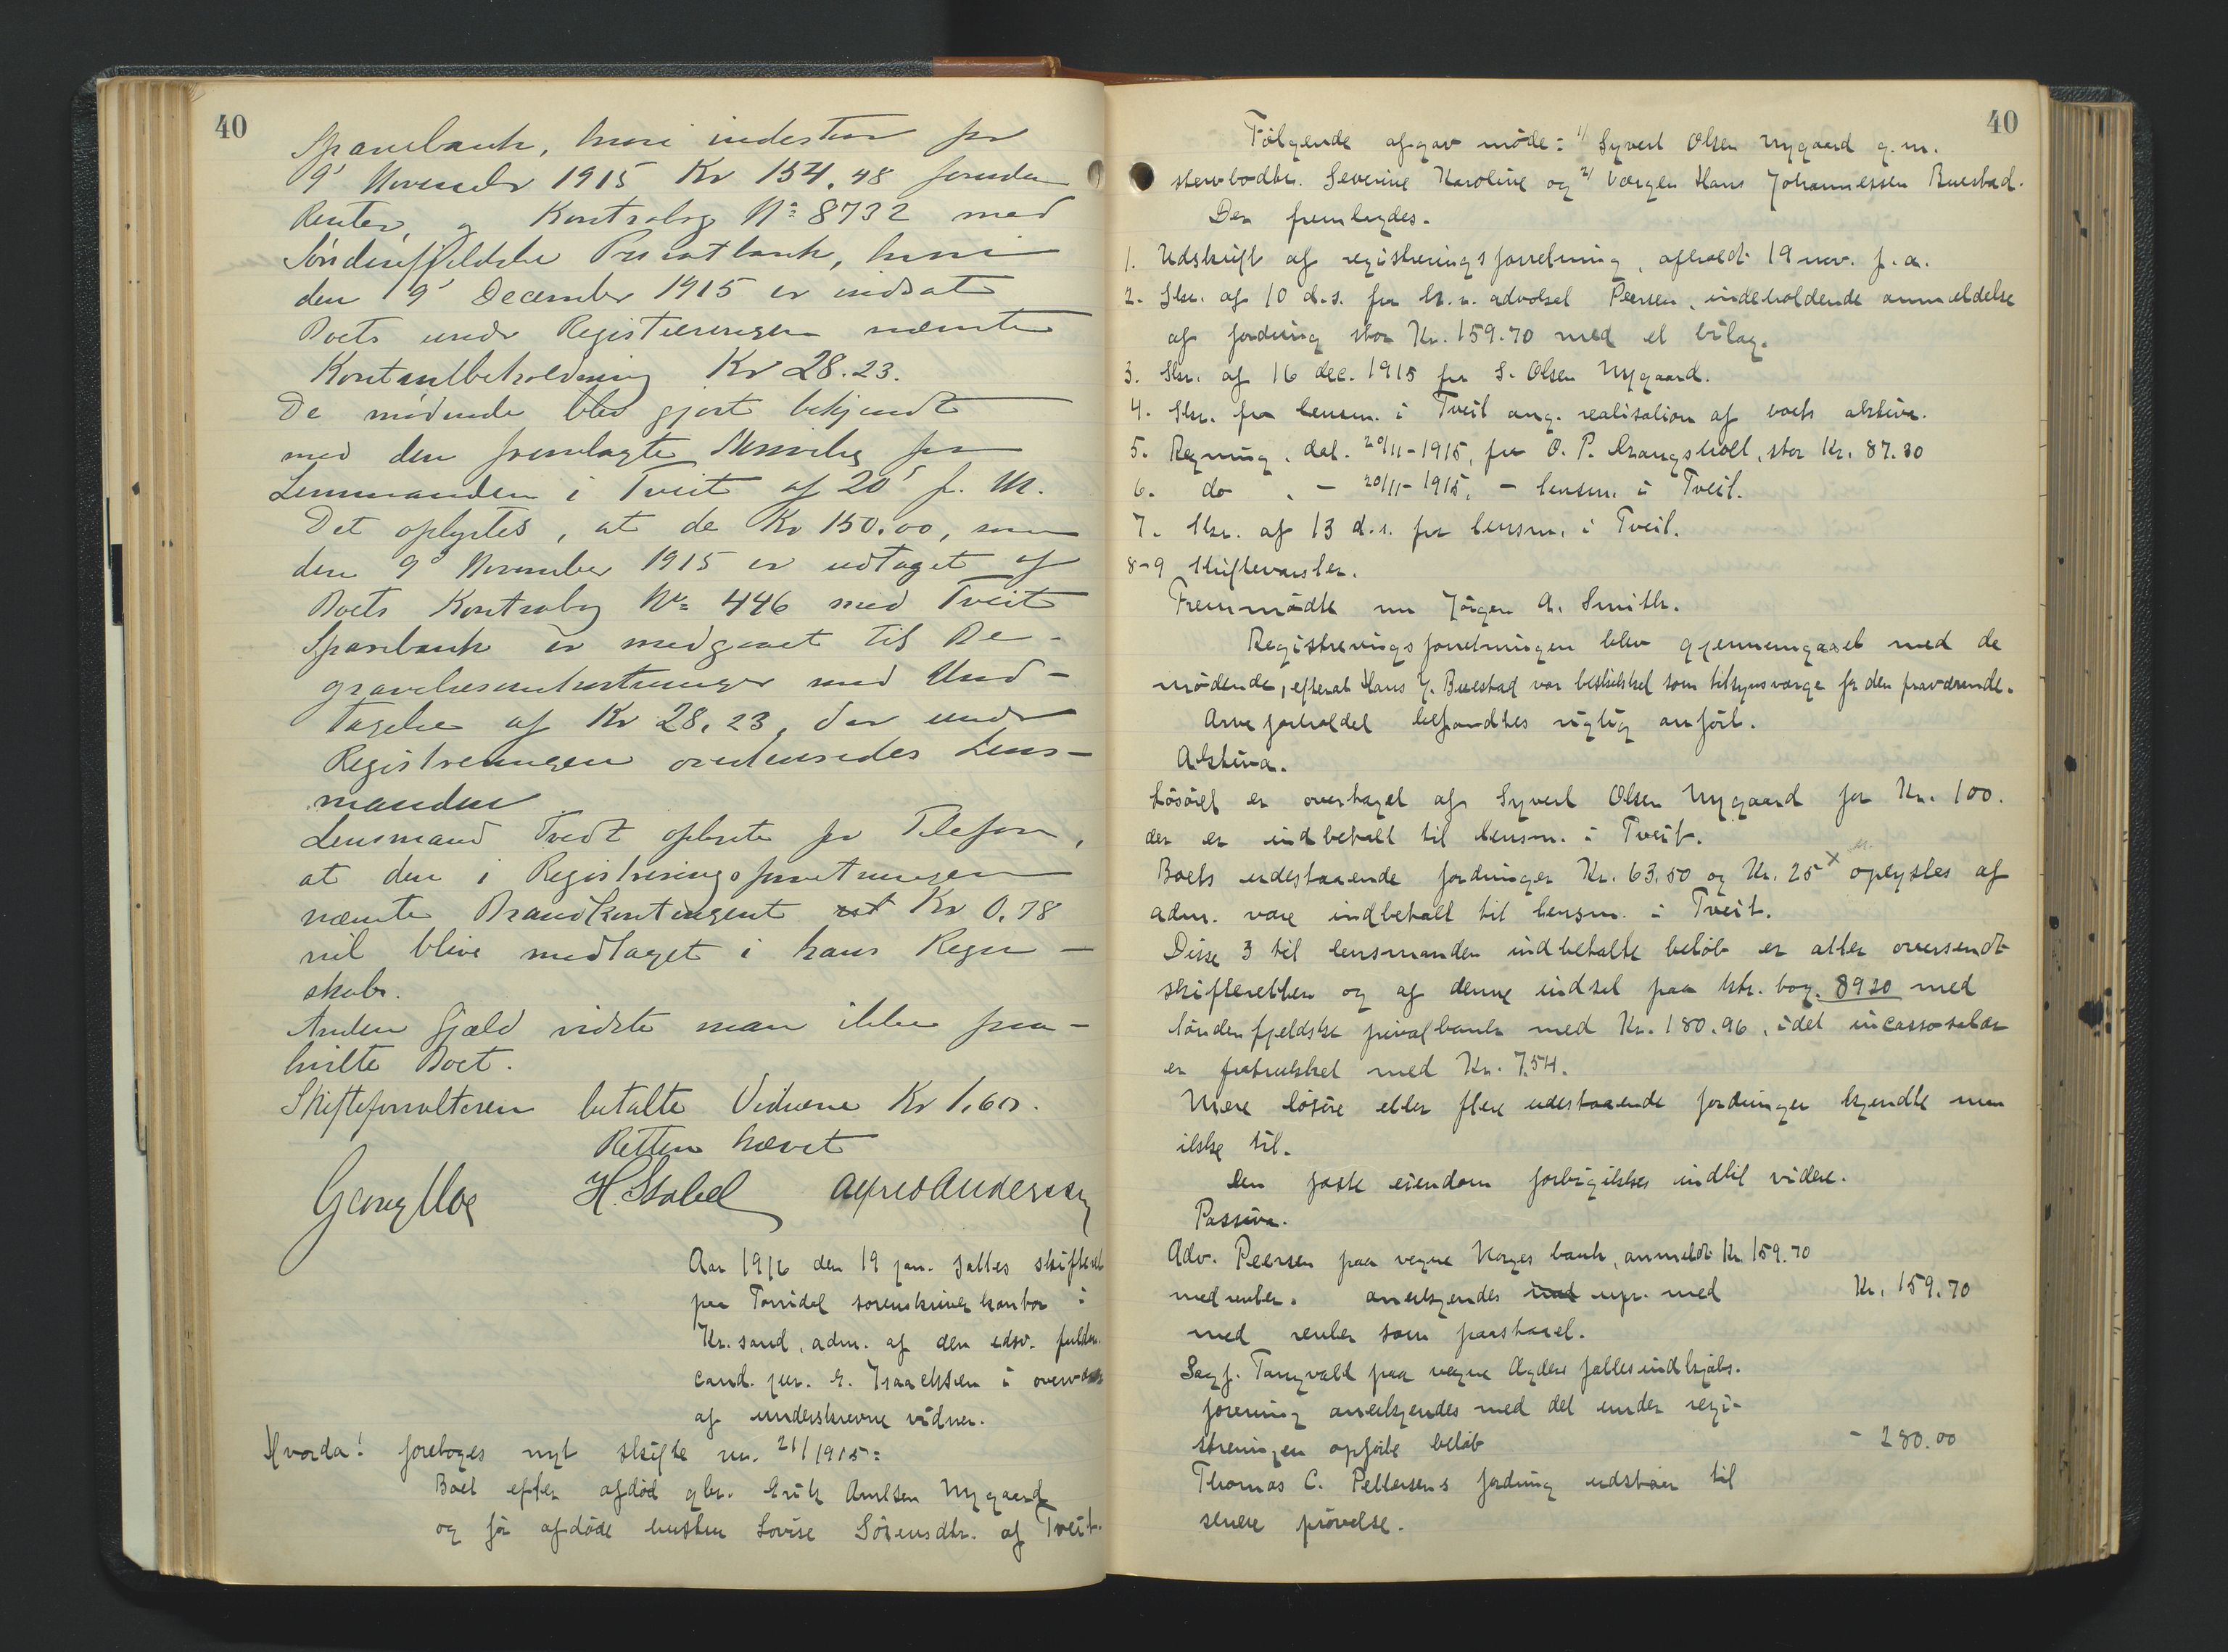 40
Sparebank, hvori indestaar pr
9' November 1915 Kr 154.48 foruden
Renter, og Kontrabog No 8732 med
Søndenfjeldske Privatbank, hvori
den 9' December 1915 er indsat
Boets under Registreringen nævnte
Kontantbeholdning Kr 28.23.
De mødende blev gjort bekjendt
med den fremlagte Skrivelse fra
Lensmanden i Tveit af 20' f. M.
Det oplystes, at de Kr 150.00, som
den 9' November 1915 er udtaget af
Boets Kontrabog No 446 med Tveit
Sparebank er medgaaet til Be-
gravelsesomkostninger med Und-
tagelse af Kr 28.23, der under
Registreringen overleveredes Lens-
manden
Lensmand Tvedt oplyste pr Telefon,
at den i Registreringsforretningen
nævnte Brandkontingent Kr 0.78
vil blive medtaget i hans Regn-
skab.
Anden Gjæld vidste man ikke paa-
hvilte Boet.
Skifteforvalteren betalte Vidnerne Kr 1.60.
Retten hævet
Georg Moe H. Stabel Alfred Andersen
Aar 1916 den 19 jan. sattes skifteret
paa Torridal sorenskriverkontor i
Kr.sand, adm. af den edsv. fuldm.
cand. jur. E. Isaachsen i overvær
af underskrevne vidner.
Hvorda! foretoges nyt skifte nr. 21/1915:
Boet efter afdød gbr. Erik Arnlsen Nygaard
og før afdøde hustru Lovise Sørensdtr. af Tveit.
40
Følgende afgav møde: 1/ Syvert Olsen Nygaard g.m.
stervbodtr. Severine Karoline og 2/ Værgen Hans Johannessen Buestad.
Der fremlagdes.
1. Udskrift af registreringsforretning, afholdt 19 nov. f.a.
2. Skr. af 10 d.s. fra h.r. advokat Peersen, indeholdende anmeldelse
af fordring stor Kr. 159.70 med et bilag.
3. Skr. af 16 dec. 1915 fra S. Olsen Nygaard.
4. Skr. fra lensm. i Tveit ang. realisation af boets aktiva.
5. Regning, dat. 20/11-1915, fra O. P. Krangsholt, stor Kr. 87.30
6. do , - 20/11-1915, - lensm. i Tveit.
7. Skr. af 13 d.s. fra lensm. i Tveit.
8-9 Skiftevarsler.
Fremmødte nu Jørgen A. Smith.
Registreringsforretningen blev gjennemgaaet med de
mødende, efterat Hans J. Buestad var beskikket som tilsynsværge for den fraværende.
Arveforholdet befandtes rigtig anført.
Aktiva.
Løsøret er overtaget af Syvert Olsen Nygaard for Kr. 100.
der er indbetalt til lensm. i Tveit.
Boets udestaaende fordringer Kr. 63.50 og Kr. 25 x oplystes af
adm. være indbetalt til lensm. i Tveit.
Disse 3 til lensmanden indbetalte beløb er atter oversendt
skifteretten og af denne indsat paa ktr. bog. 8920 med
Søndenfjeldske privatbank med Kr. 180.96, idet incassosalær
er fratrukket med Kr. 7.54.
Mere løsøre eller flere udestaaende fordringer kjendte man
ikke til.
Den faste eiendom forbigikkes indtil videre.
Passiva.
Adv. Peersen paa vegne Norges bank, anmeldt Kr. 159.70
med renter. anerkjendes upr. med Kr. 159.70
med renter som paastaaet.
Sagf. Tangvald paa vegne Agders fællesindkjøbs-
forening anerkjendes med det under regi-
streringen opførte beløb - 280.00
Thomas C. Pettersens fordring udstaar til
senere prøvelse.